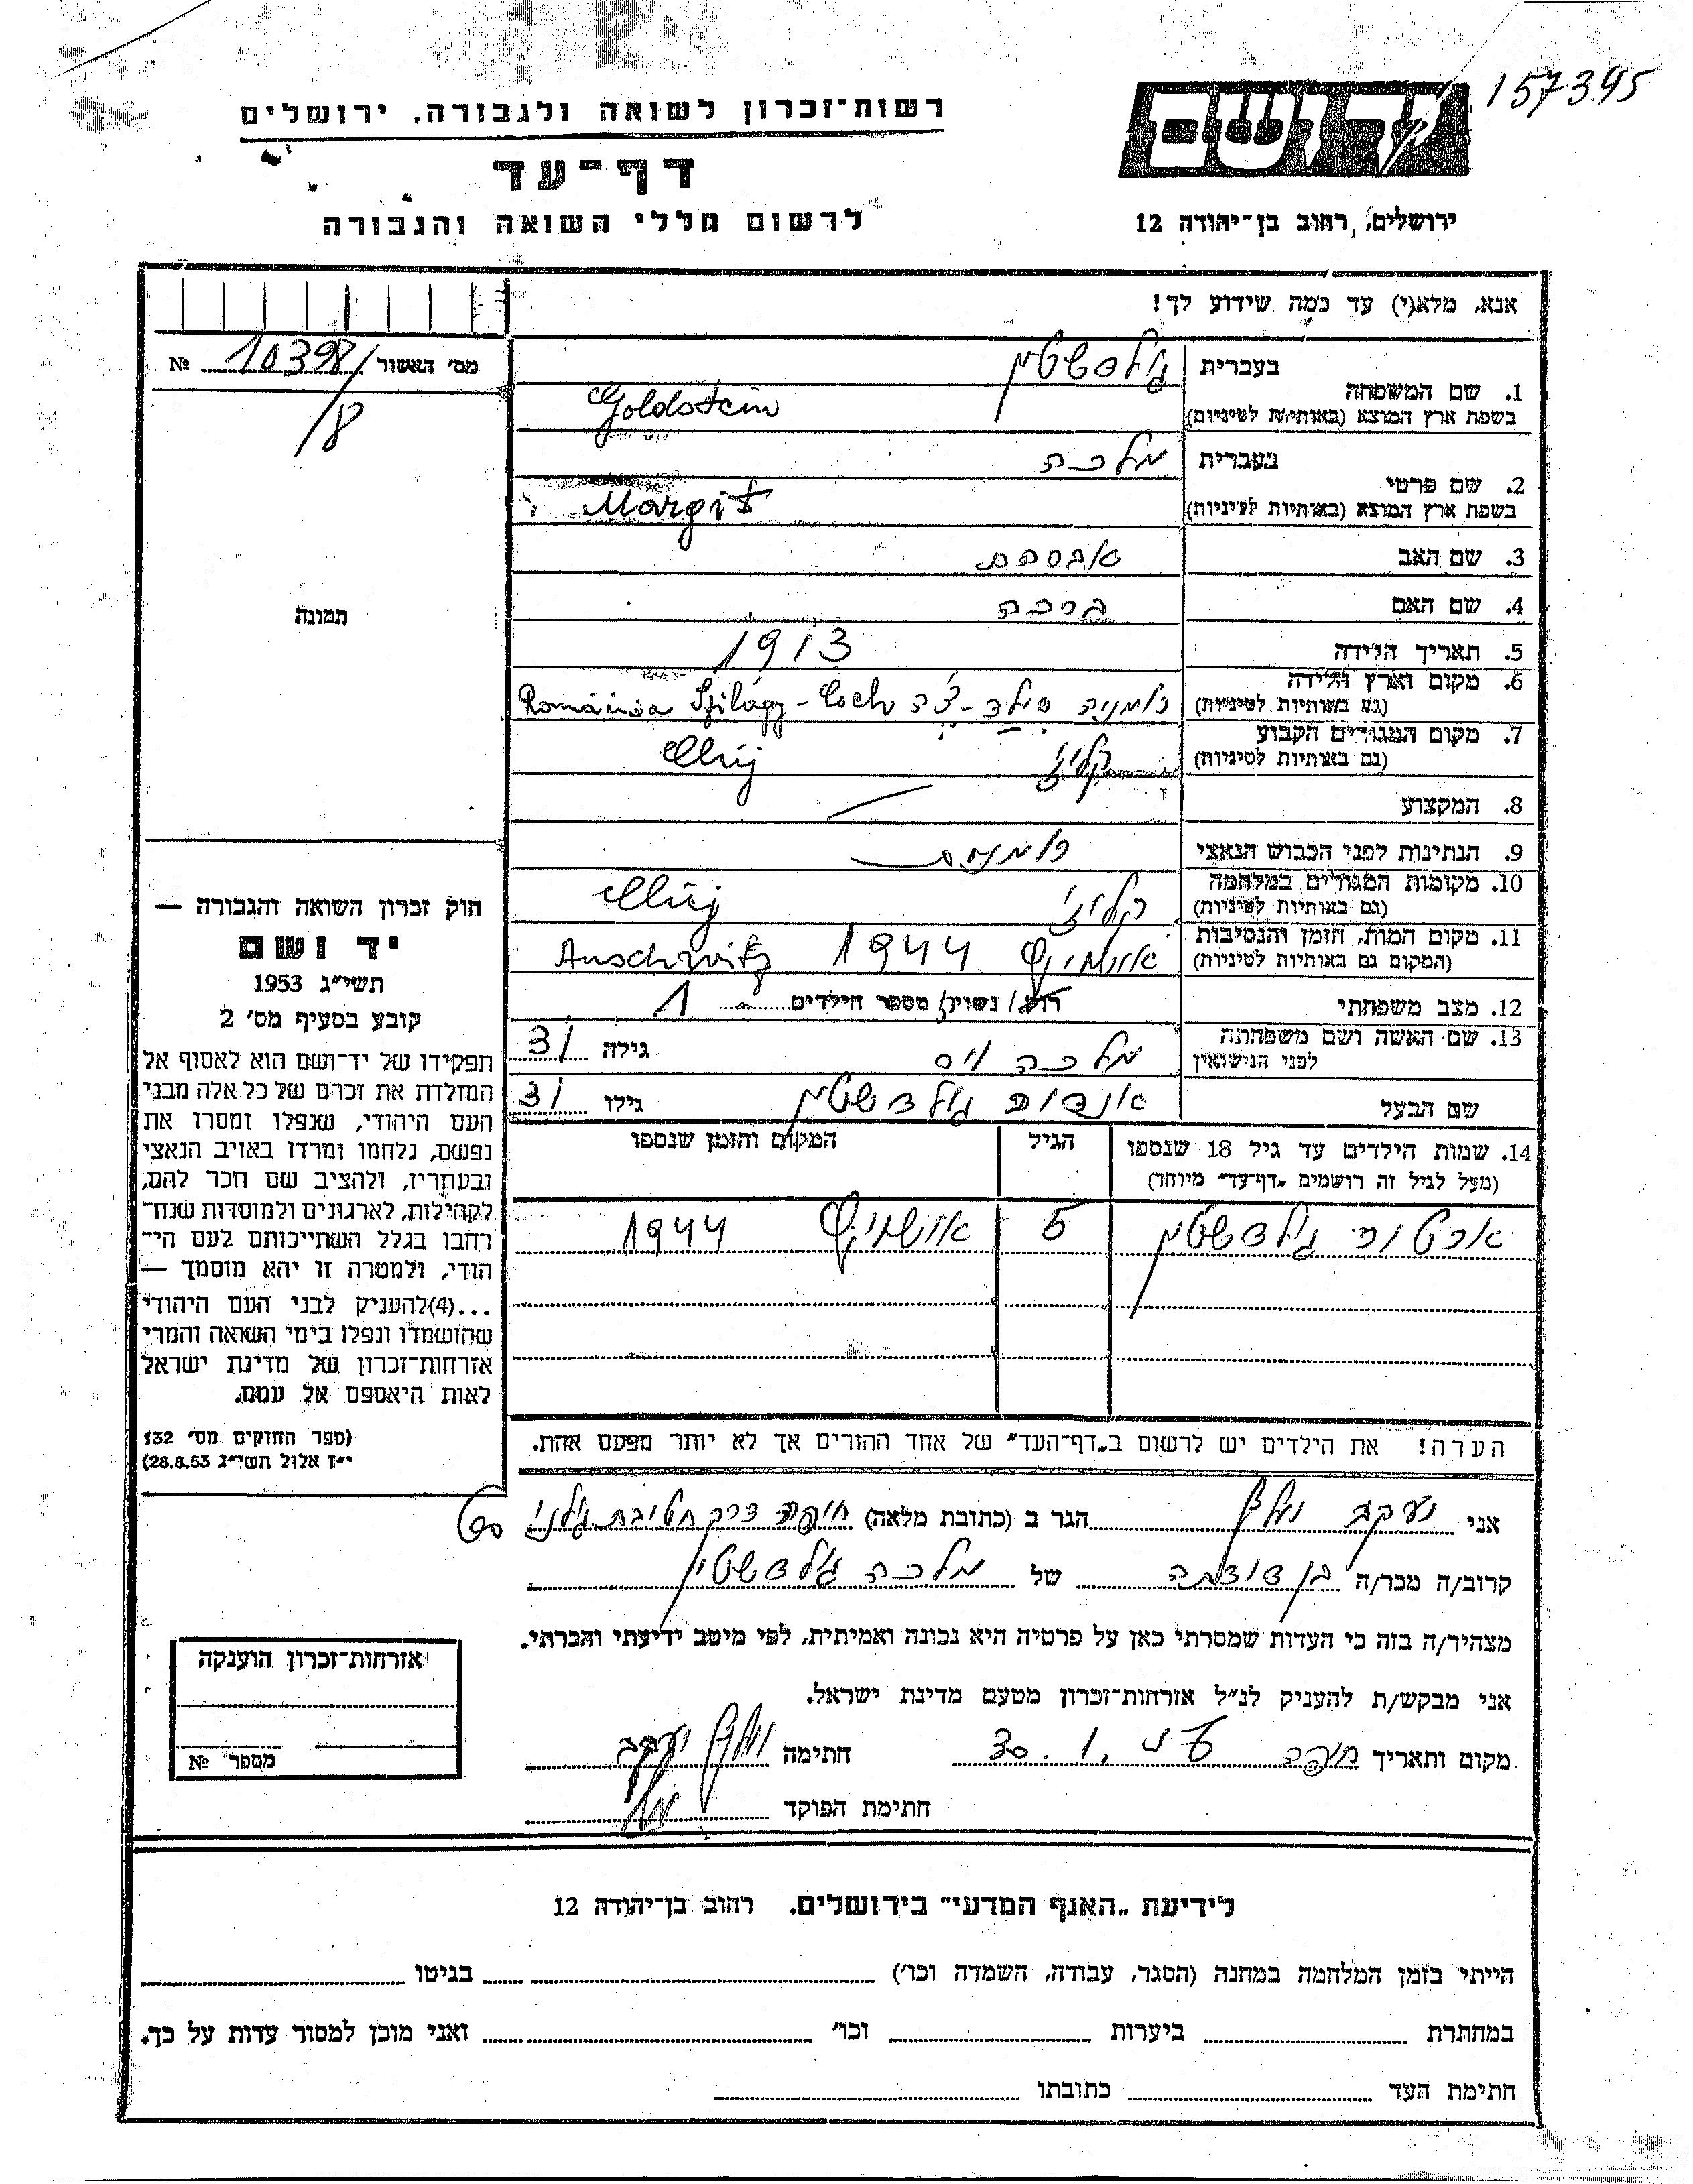 157345
יד ושם
רשות־זכרון לשואה ולגבורה, ירושלים
דף־עד
לרשום חללי השואה והגבורה
ירושלים, רחוב בן־יהודה 12
אנא, מלא(י) עד כמה שידוע לך!
מס׳ האשור 10398/ №
/8
תמונה
1. שם המשפחה
בעברית גולדשטין
בשפת ארץ המוצא (באותיות לטיניות) Goldstein
2. שם פרטי
בעברית מלכה
בשפת ארץ המוצא (באותיות לטיניות) Margit
3. שם האב אברהם
4. שם האם ברכה
5. תאריך הלידה 1913
6. מקום וארץ הלידה
(גם באותיות לטיניות) רומניה סילד-צ׳ה Románia Szilágy-Cseh
7. מקום המגורים הקבוע
(גם באותיות לטיניות) קלוז׳ Cluj
8. המקצוע
9. הנתינות לפני הכבוש הנאצי רומנית
10. מקומות המגורים במלחמה
(גם באותיות לטיניות) קלוז׳ Cluj
11. מקום המות, הזמן והנסיבות
(המקום גם באותיות לטיניות) אושויץ 1944 Auschwitz
12. מצב משפחתי רוק/ נשוי/ מספר הילדים 1
13. שם האשה ושם משפחתה
לפני הנישואין מלכה וייס גילה 31
שם הבעל גולדשטין גילו 31
14. שמות הילדים עד גיל 18 שנספו
(מעל לגיל זה רושמים „דף־עד״ מיוחד)
הגיל
המקום והזמן שנספו
ארטור גולדשטין 5 אושויץ 1944
הערה! את הילדים יש לרשום ב„דף־העד״ של אחד ההורים אך לא יותר מפעם אחת.
חוק זכרון השואה והגבורה —
יד ושם
תשי״ג 1953
קובע בסעיף מס׳ 2
תפקידו של יד־ושם הוא לאסוף אל
המולדת את זכרם של כל אלה מבני
העם היהודי, שנפלו ומסרו את
נפשם, נלחמו ומרדו באויב הנאצי
ובעוזריו, ולהציב שם וזכר להם,
לקהילות, לארגונים ולמוסדות שנח־
רבו בגלל השתייכותם לעם הי־
הודי, ולמטרה זו יהא מוסמך —
...(4)להעניק לבני העם היהודי
שהושמדו ונפלו בימי השואה והמרי
אזרחות־זכרון של מדינת ישראל
לאות היאספם אל עמם.
(ספר החוקים מס׳ 132
י״ז אלול תשי״ג 28.8.53)
אני יעקב הגר ב (כתובת מלאה) חיפה דרך חטיבת גולני
קרוב/ה מכר/ה בן דודתה של מלכה גולדשטין
מצהיר/ה בזה כי העדות שמסרתי כאן על פרטיה היא נכונה ואמיתית, לפי מיטב ידיעתי והכרתי.
אני מבקש/ת להעניק לנ״ל אזרחות־זכרון מטעם מדינת ישראל.
מקום ותאריך חיפה חתימה יעקב
חתימת הפוקד
אזרחות־זכרון הוענקה
מספר №
לידיעת „האגף המדעי״ בירושלים. רחוב בן־יהודה 12
הייתי בזמן המלחמה במחנה (הסגר, עבודה, השמדה וכו׳) בגיטו
במחתרת ביערות וכו׳ ואני מוכן למסור עדות על כך.
חתימת העד כתובתו